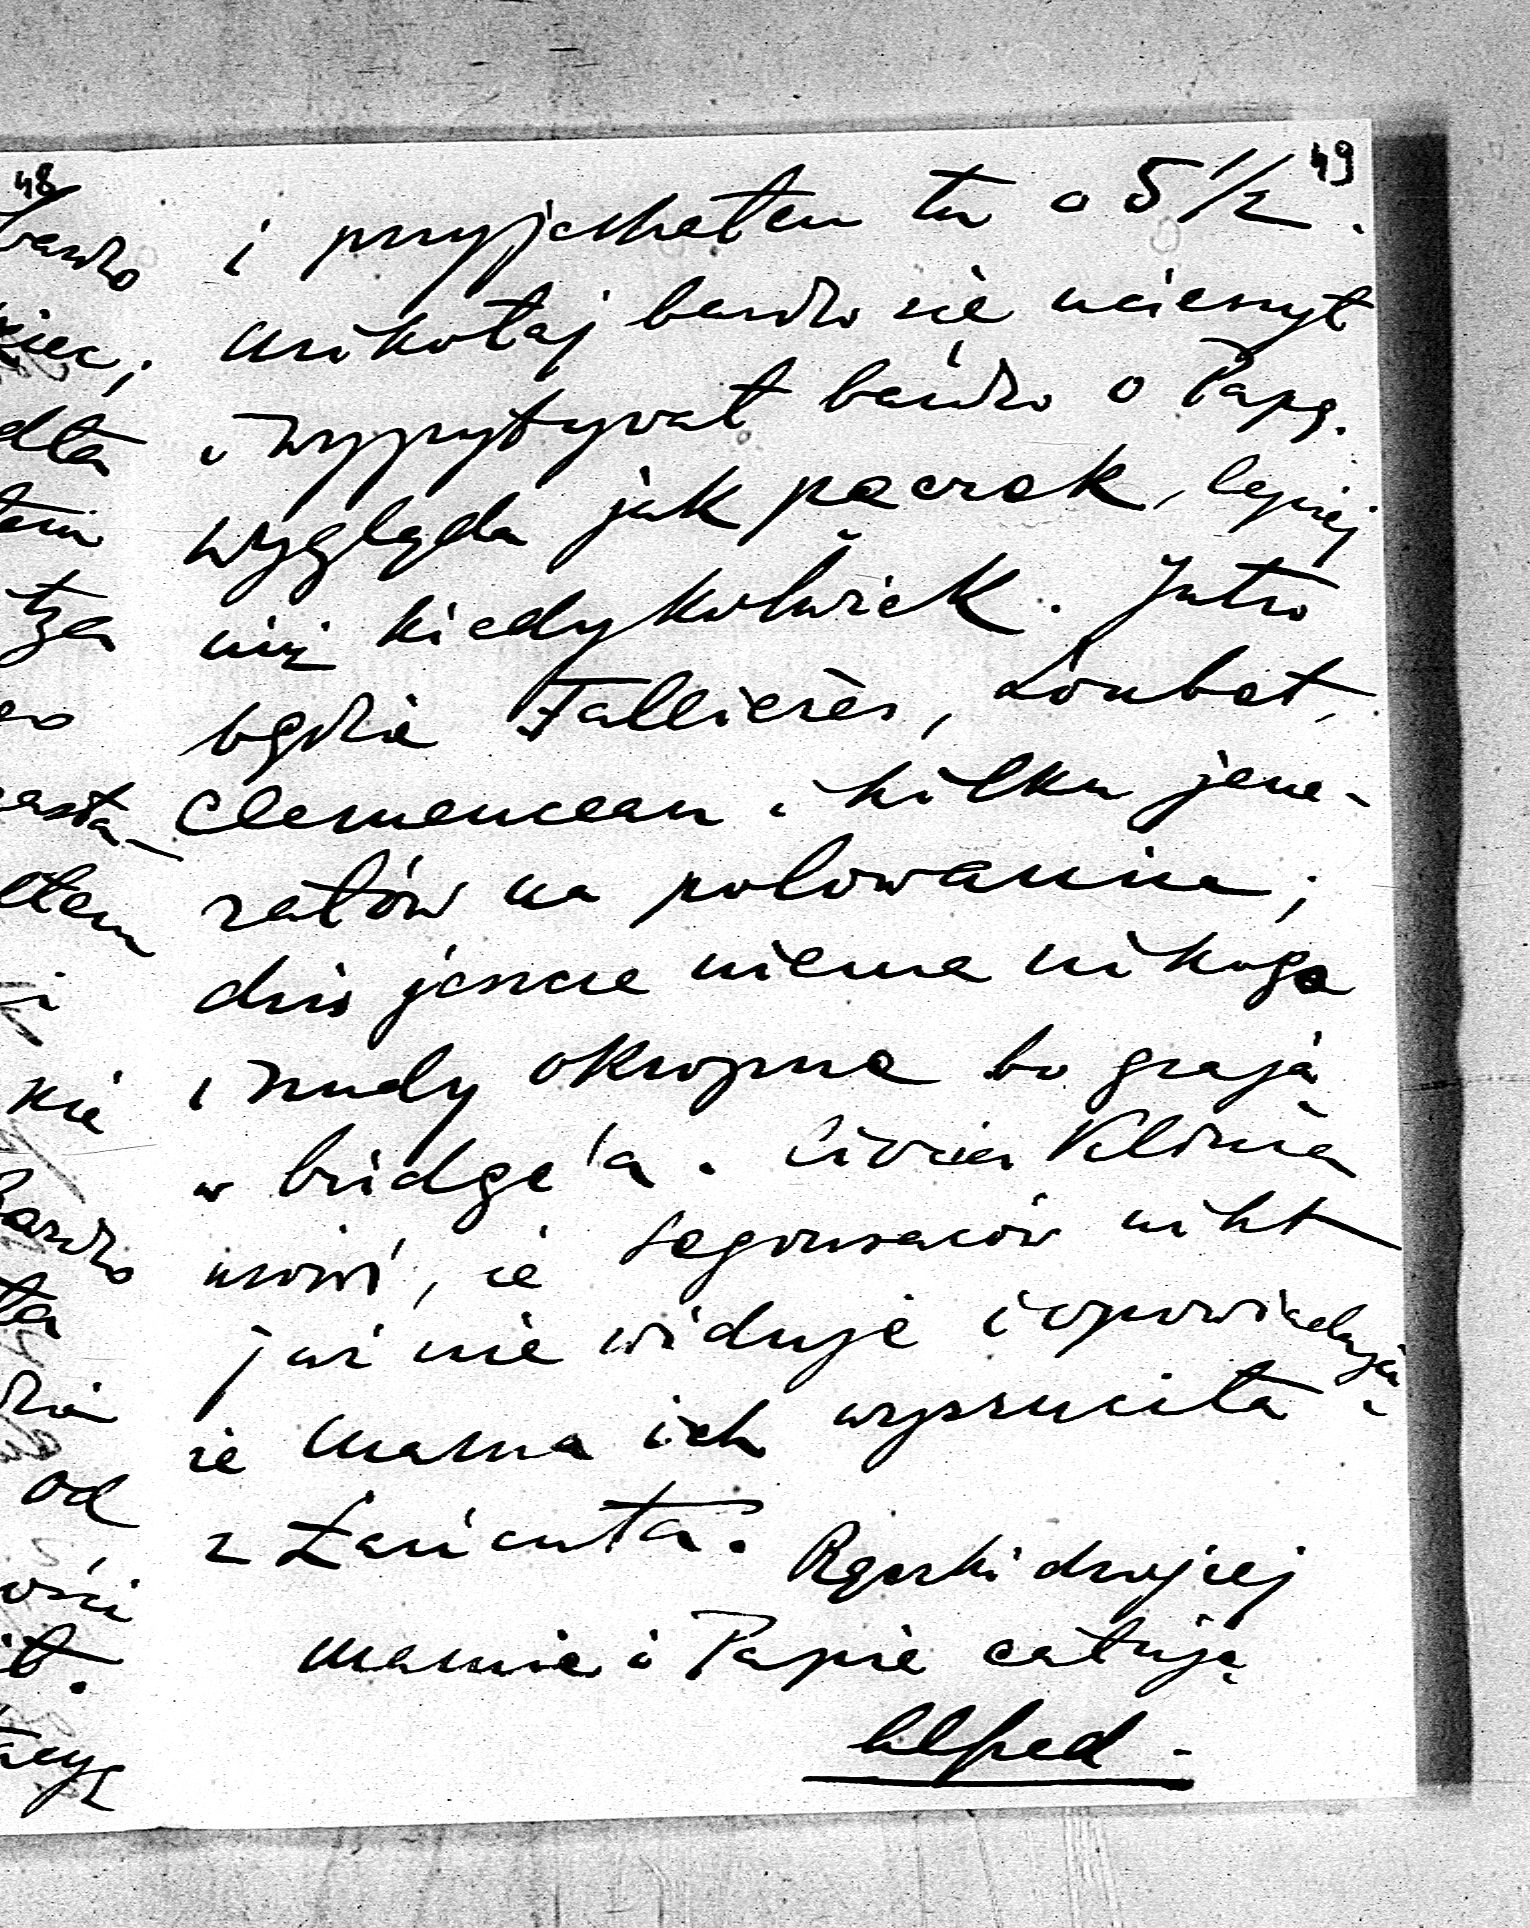 49
i przyjechałem tu o 5 1/2.
Mikołaj bardzo się ucieszył
i wypytywał bardzo o Papę.
Wygląda jak pączek, lepiej
niż kiedykolwiek. Jutro
będzie Fallières, Loubet,
Clemenceau i kilku jene-
rałów na polowanie;
dziś jeszcze niema nikogo
i nudy okropne bo grają
w bridge'a. Klocia
mówi, że Segonzaców nikt
już nie widuje i opowiadają
że Mama ich wyrzuciła
z Łańcuta. Rączki drogiej
Mamie i Papie całuję
Alfred.
48
bardzo
dla
tza
nie
bardzo
od